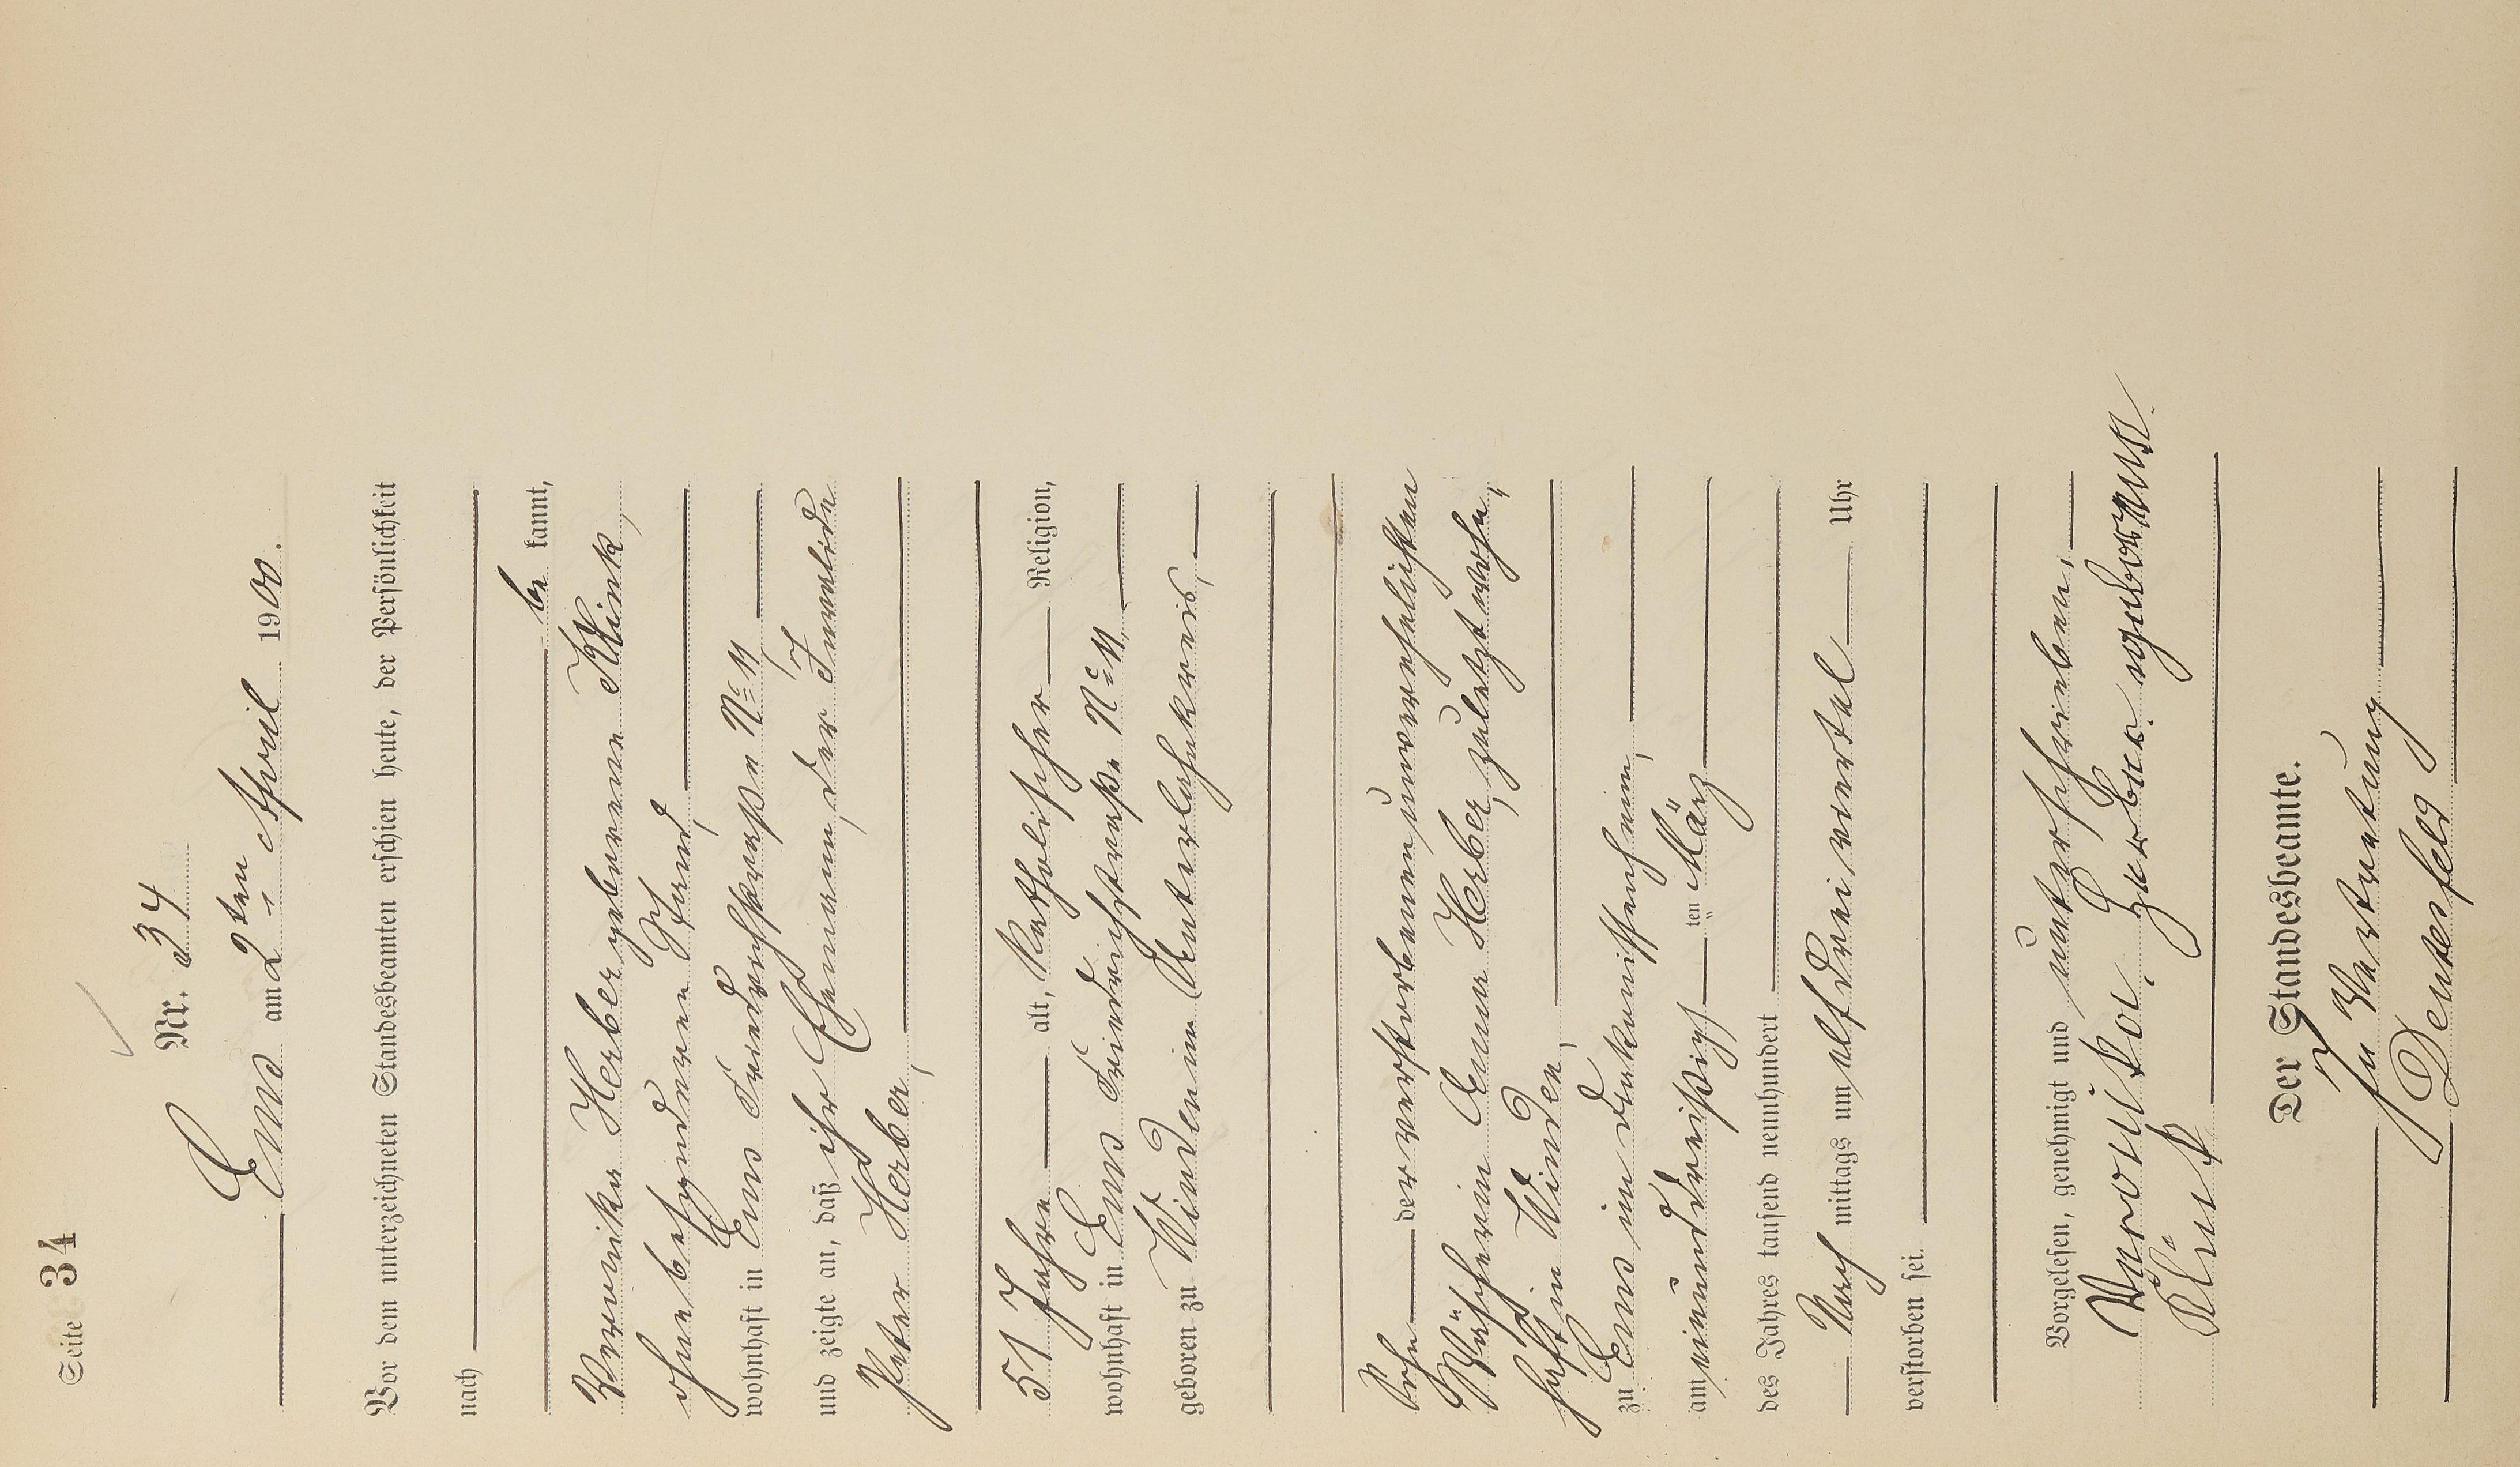 Seite 34
Nr. 34
Ems am 2ten April 1900.
Vor dem unterzeichneten Standesbeamten erschien heute, der Persönlichkeit
nach
be kannt,
Veronika Herber geborene Klink,
ohne besonderen Stand,
wohnhaft in Ems Friedrichstraße No 11,
und zeigte an, daß ihr Ehemann, der Invalide
Peter Herber,
51 Jahre alt, katholischer Religion,
wohnhaft in Ems Friedrichstraße No 11,
geboren zu Winden im Unterlahnkreis,
Sohn der verstorbenen unverehelichten
Wäscherin Anna Herber, zuletzt wohn¬
haft in Winden,
zu Ems im Diakonissenheim,
am einunddreißigsten März
des Jahres tausend neunhundert
Nach mittags um elf dreiviertel Uhr
verstorben sei.
Vorgelesen, genehmigt und unterschrieben,
Veronika Herber geborene
Klink
Der Standesbeamte.
In Vertretung
Deutesfeld